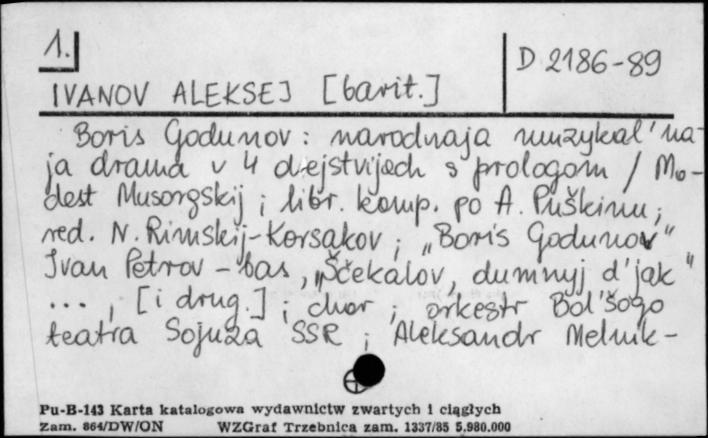 1.
D 2186-89
IVANOV ALEKSEJ [barit.]
Boris Godunov : narodnaja muzykal'na-
ja drama v 4 dejstvijach s prologom / Mo-
dest Musorgskij ; libr. komp. po A. Puškinu ;
red. N. Rimskij-Korsakov ; „Boris Godunov"
Ivan Petrov - bas, „Ščekalov, dumnyj d'jak"
... , [i drug.] ; chor ; orkestr Bol'šogo
teatra Sojuza SSR ; Aleksandr Melnik-
Pu-B-143 Karta katalogowa wydawnictw zwartych i ciągłych
Zam. 864/DW/ON WZGraf Trzebnica zam. 1337/85 5.980.000